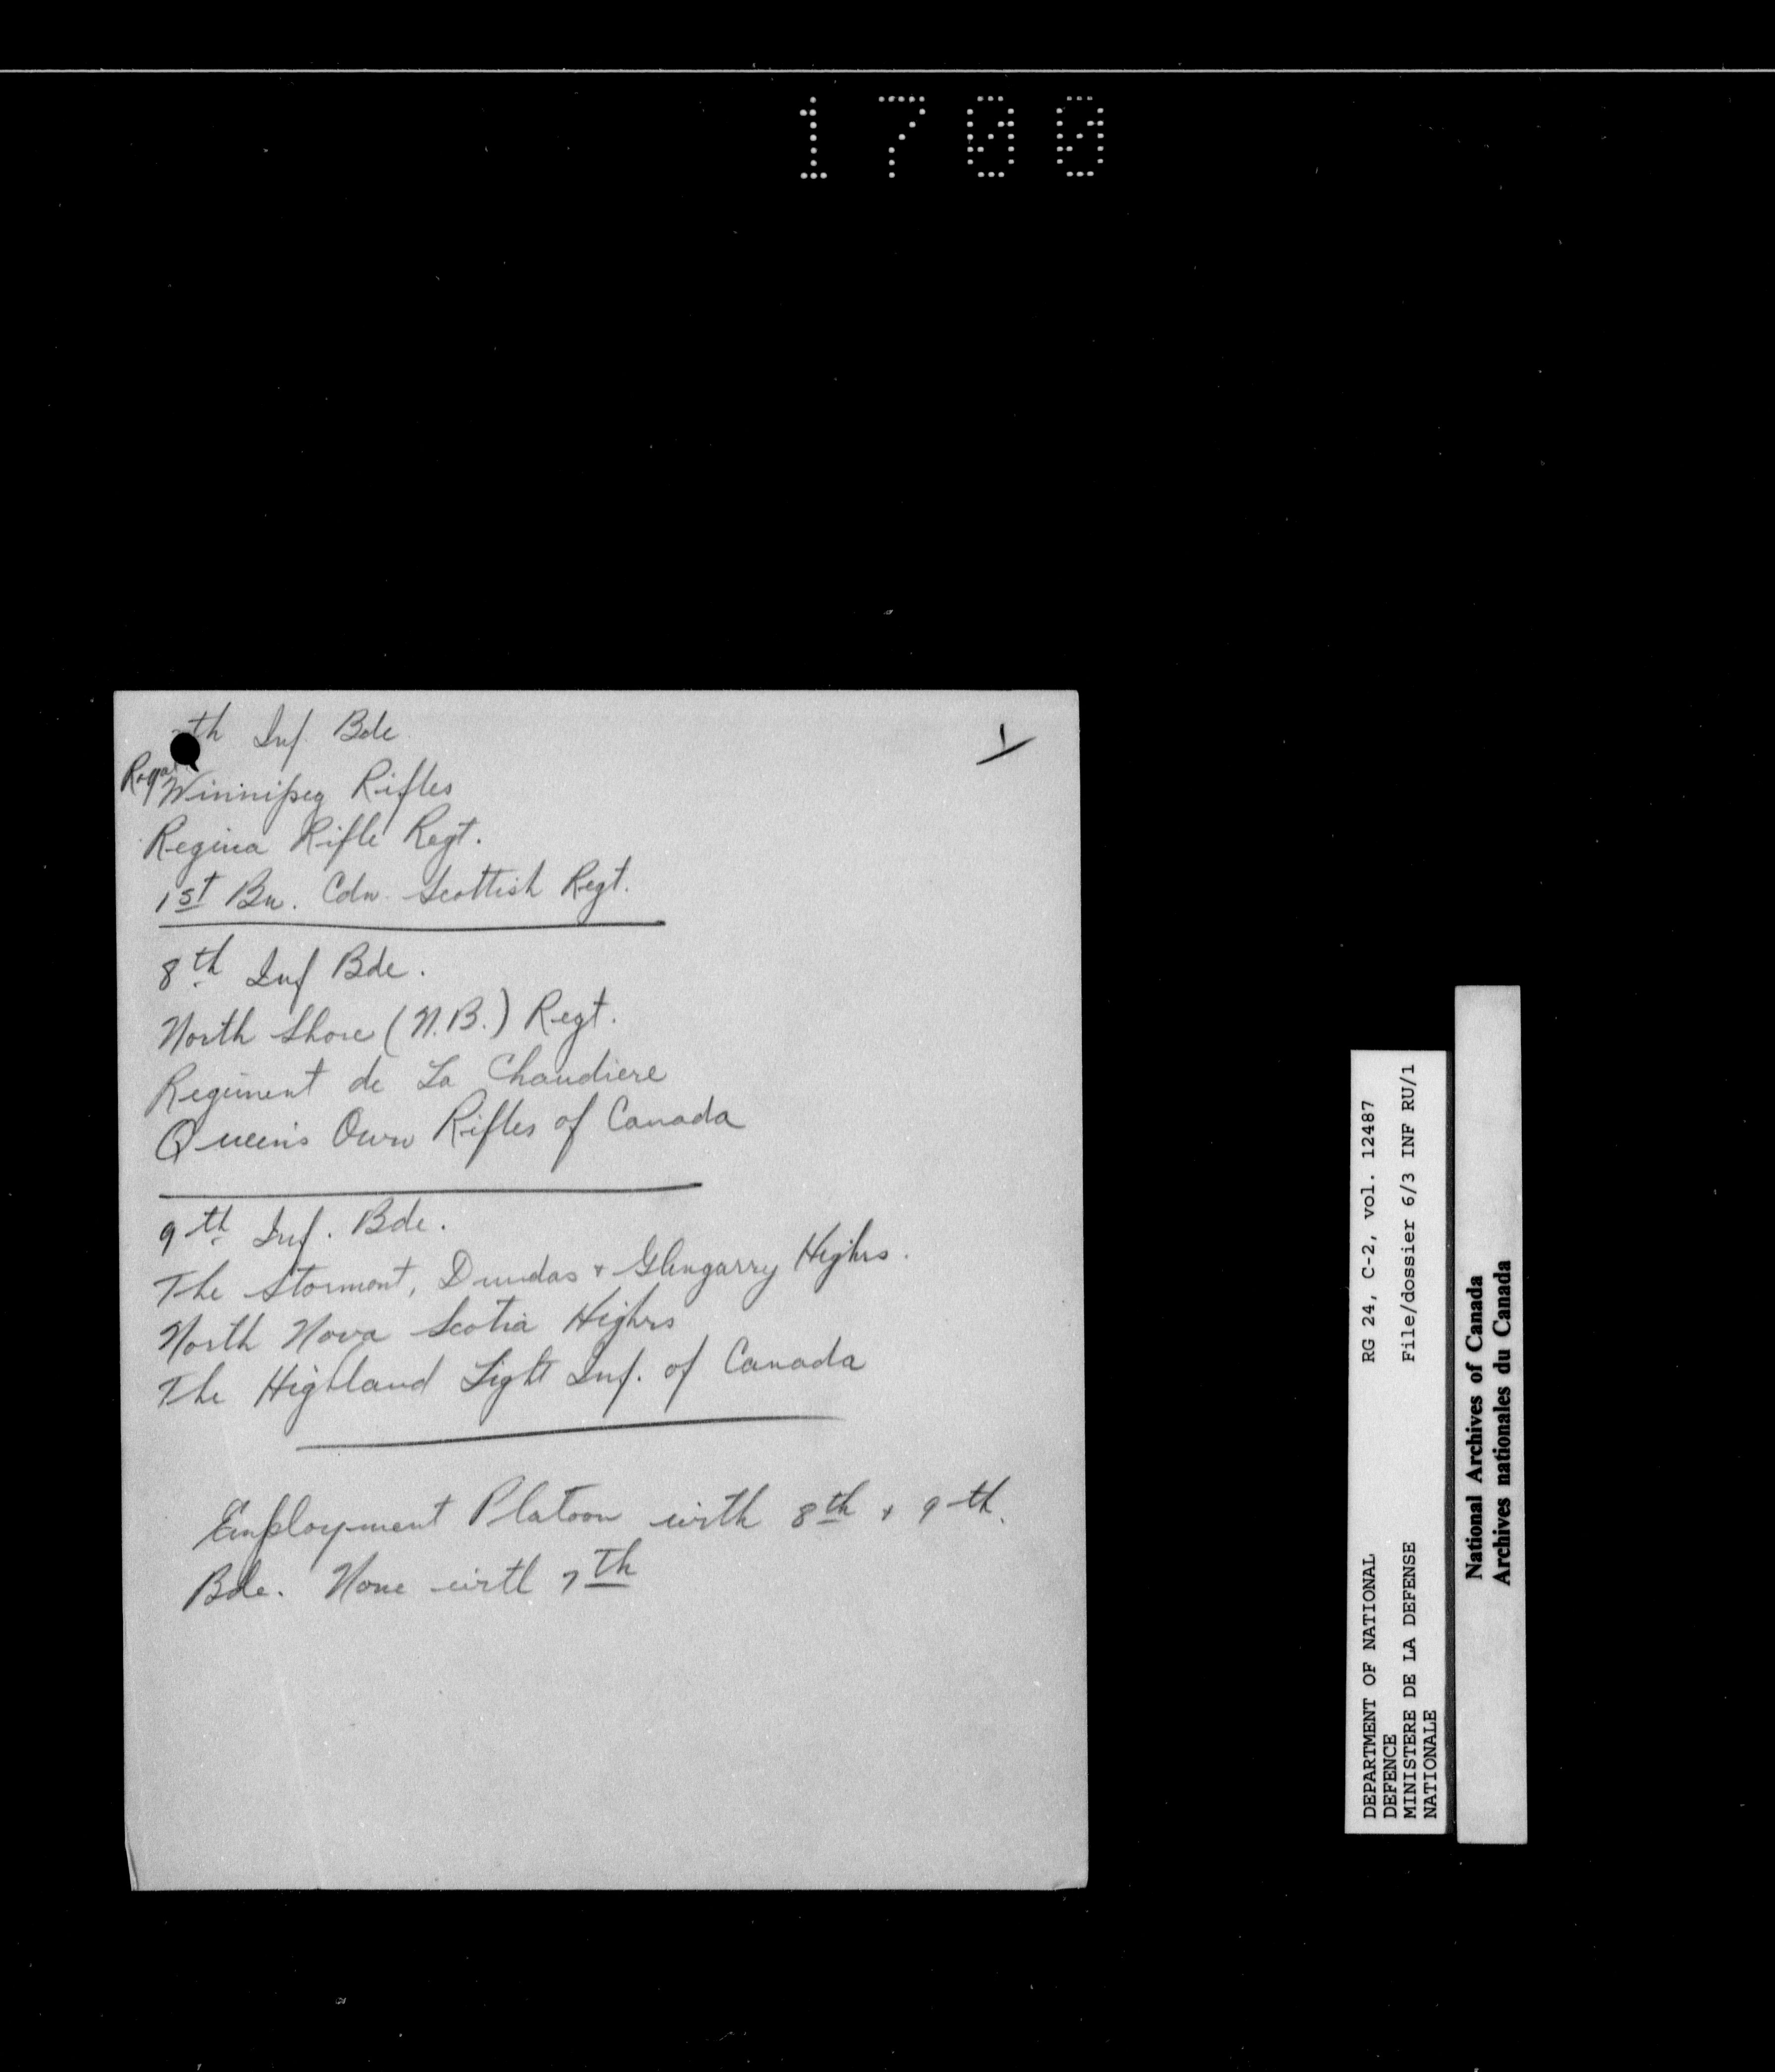 1700
1
th Inf. Bde.
Royal Winnipeg Rifles
Regina Rifle Regt.
1st Bn. Cdn. Scottish Regt.
8th Inf Bde.
North Shore (N.B.) Regt.
Regiment de La Chaudiere
Queen's Own Rifles of Canada
9th Inf. Bde.
The Stormont, Dundas + Glengarry Highrs.
North Nova Scotia Highrs
The Highland Light Inf. of Canada
Employment Platoon with 8th + 9th.
Bde. None with 7th
DEPARTMENT OF NATIONAL RG 24, C-2, vol. 12487
DEFENCE
MINISTERE DE LA DEFENSE File/dossier 6/3 INF RU/1
NATIONALE
National Archives of Canada
Archives nationales du Canada